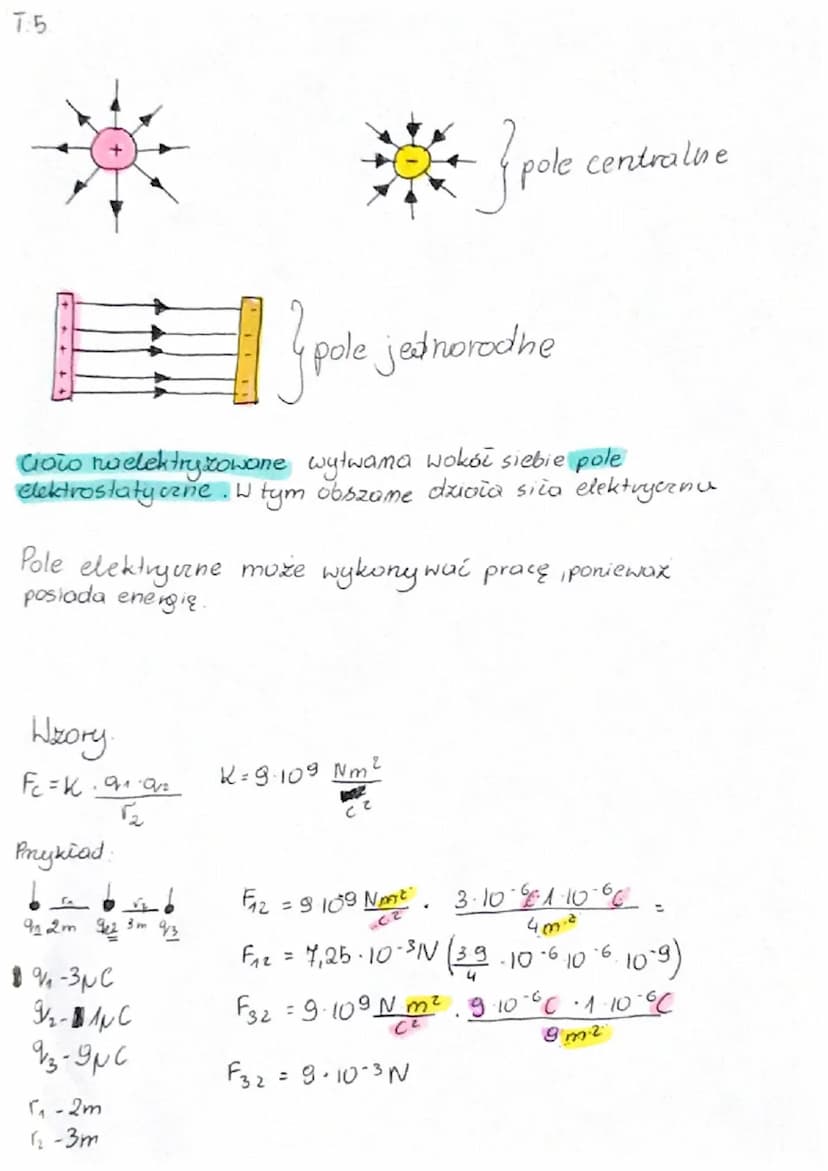 T.5
+ - } pole centralne
+ + + + + - - - - - } pole jednorodne
Ciało naelektryzowane wytwarza wokół siebie pole
elektrostatyczne. W tym obszarze działa siła elektryczna
Pole elektryczne może wykonywać pracę, ponieważ
posiada energię.
Wzory.
Fc = K · q1 · q2 / r2 K = 9·10^9 Nm^2 / C^2
Przykład:
r1 r2
q1 2m q2 3m q3
F12 = 9 10^9 Nm^2 / C^2 · 3·10^-6C·1·10^-6C / 4m^2 =
F12 = 7,25·10^-3N (3 9 / 4 ·10^-6·10^-6·10^-9)
q1 - 3μC
F32 = 9·10^9 N m^2 / C^2 · 9·10^-6C ·1·10^-6C / 9m^2
q2 - 1μC
q3 - 9μC
F32 = 9·10^-3N
r1 - 2m
r2 - 3m